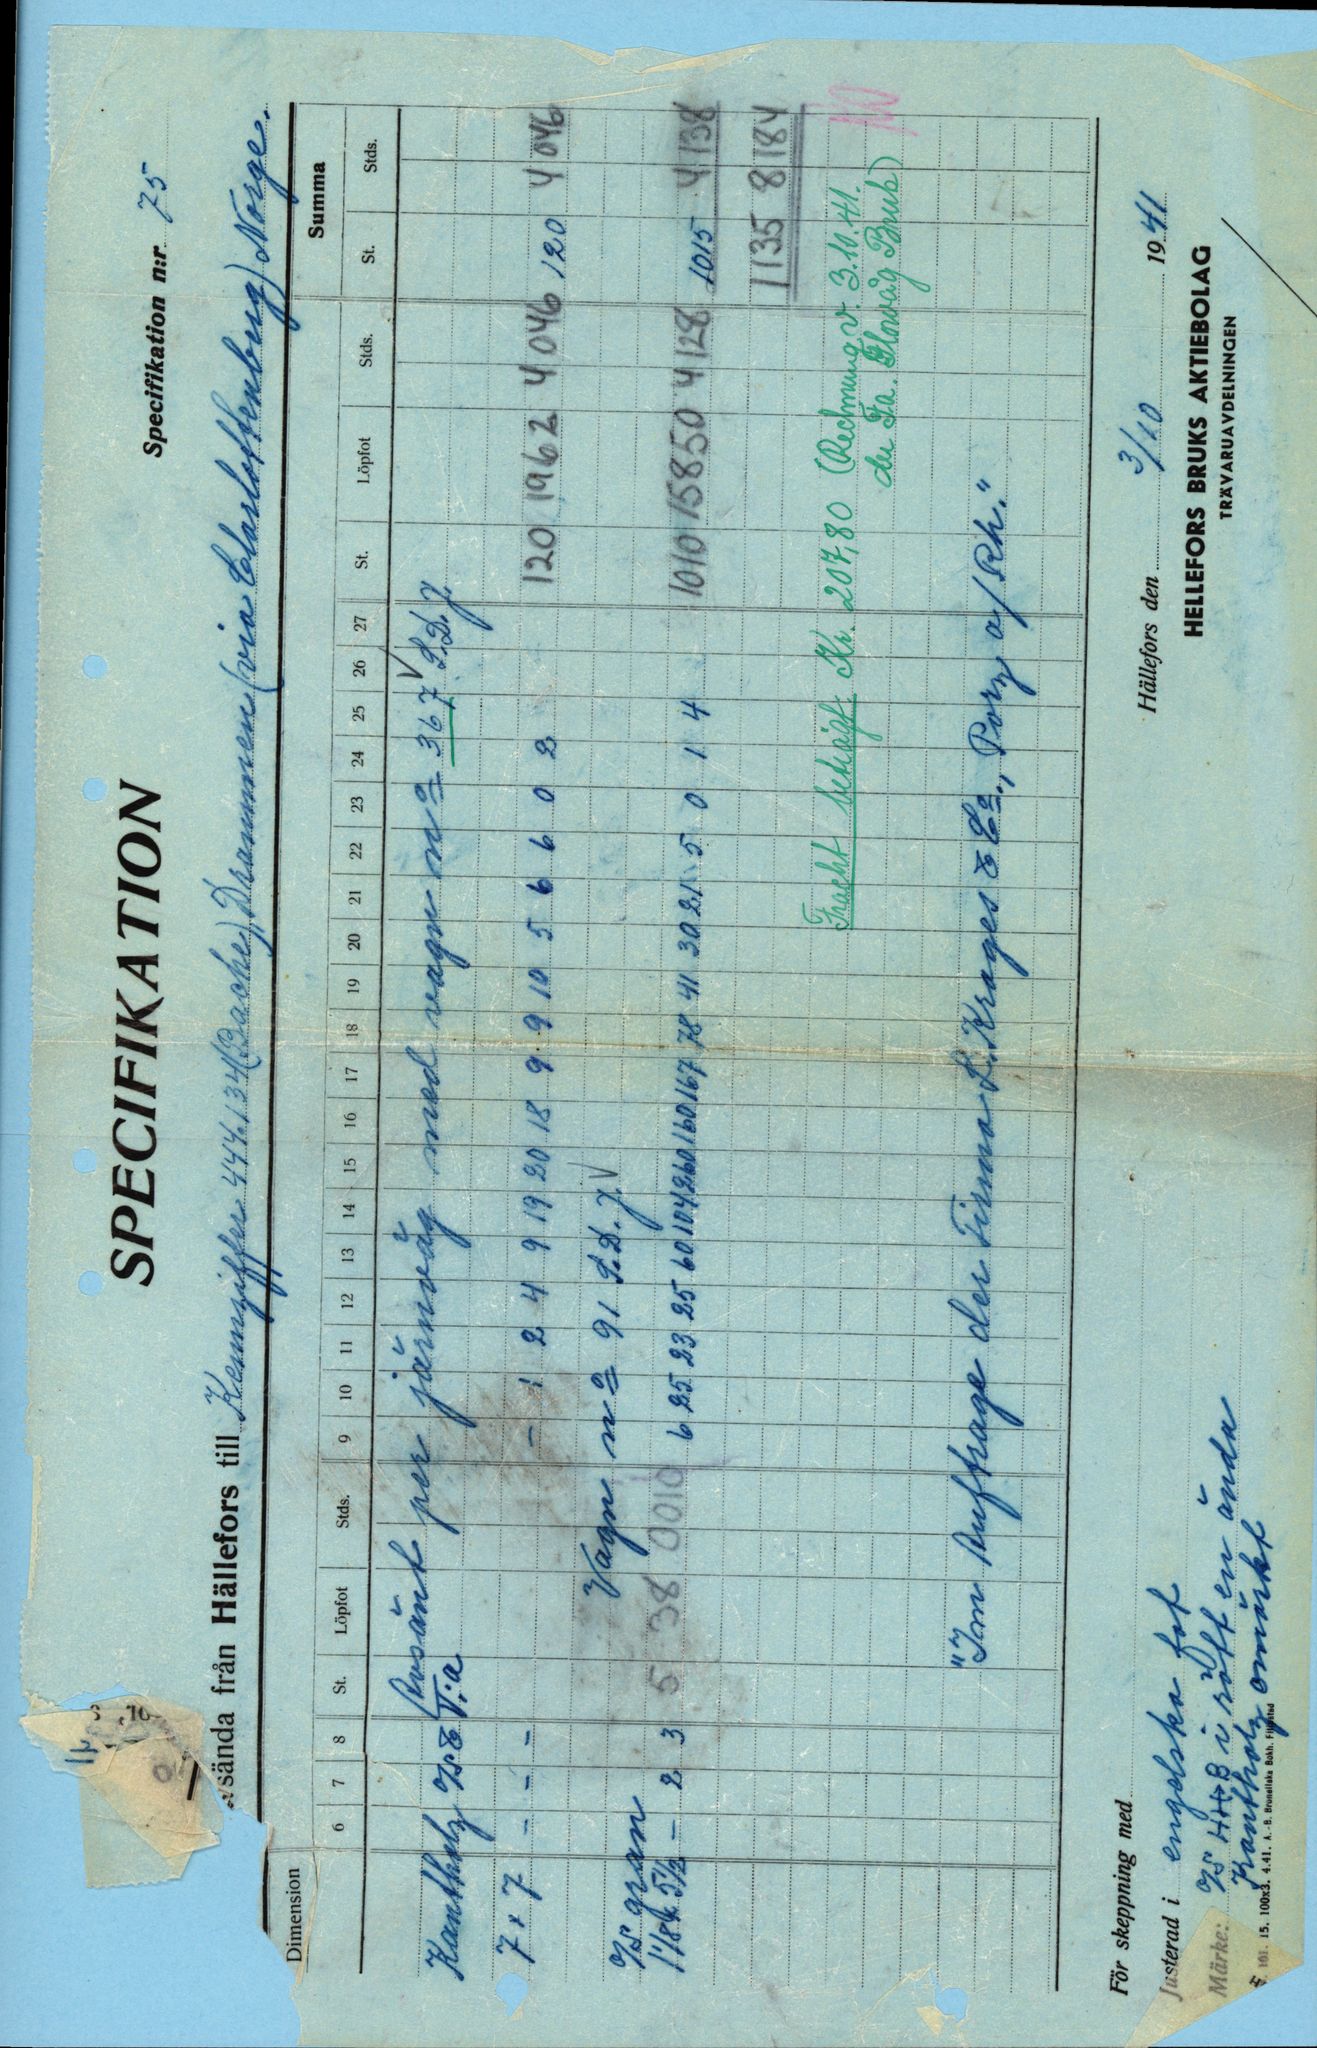 SPECIFIKATION
Specifikation n:r 75
vsända från Hällefors till Kennziffer 444.134 (Bache) Drammen (via Charlottenburg) Norge.
Dimension 6 7 8 St. Löpfot Stds. 9 10 11 12 13 14 15 16 17 18 19 20 21 22 23 24 25 26 27 St. Löpfot Stds. Summa St. Stds.
Avsänt per järnväg med vagn nº 367 S.D.J. √
Kantholz o/s & V:a
7 x 7 - - - - 1 2 4 9 19 20 18 9 9 10 5 6 6 0 2 120 1962 4 046 120 4 046
Vagn nº 91 S.D.J. √
o/s gran
1 1/8 x 5 1/2 - 2 3 5 38 0010 6 25 23 25 60 104 260 160 167 78 41 30 21 5 0 1 4 1010 15850 4 128 1015 4 138
1135 8 184
Fracht beträgt: Kr. 207,80 (Rechnung v. 3.10.41.
der Fa. Florvåg Bruk)
"Im Auftrage der Firma L. Krages & Co., Porz a/Rh."
För skeppning med
Justerad i engelska fot
Märke: o/s HHB i rött en ända
Kantholz omärkt
101. 15. 100x3. 4.41. A.-B. Brunellska Bokh. Filipstad
Hällefors den 3/10 1941
HELLEFORS BRUKS AKTIEBOLAG
TRÄVARUAVDELNINGEN